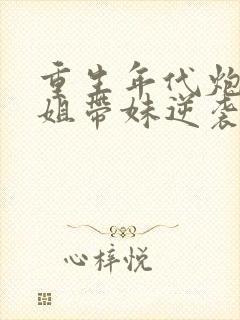 重生年代炮
姐带妹逆袭
心梓悦